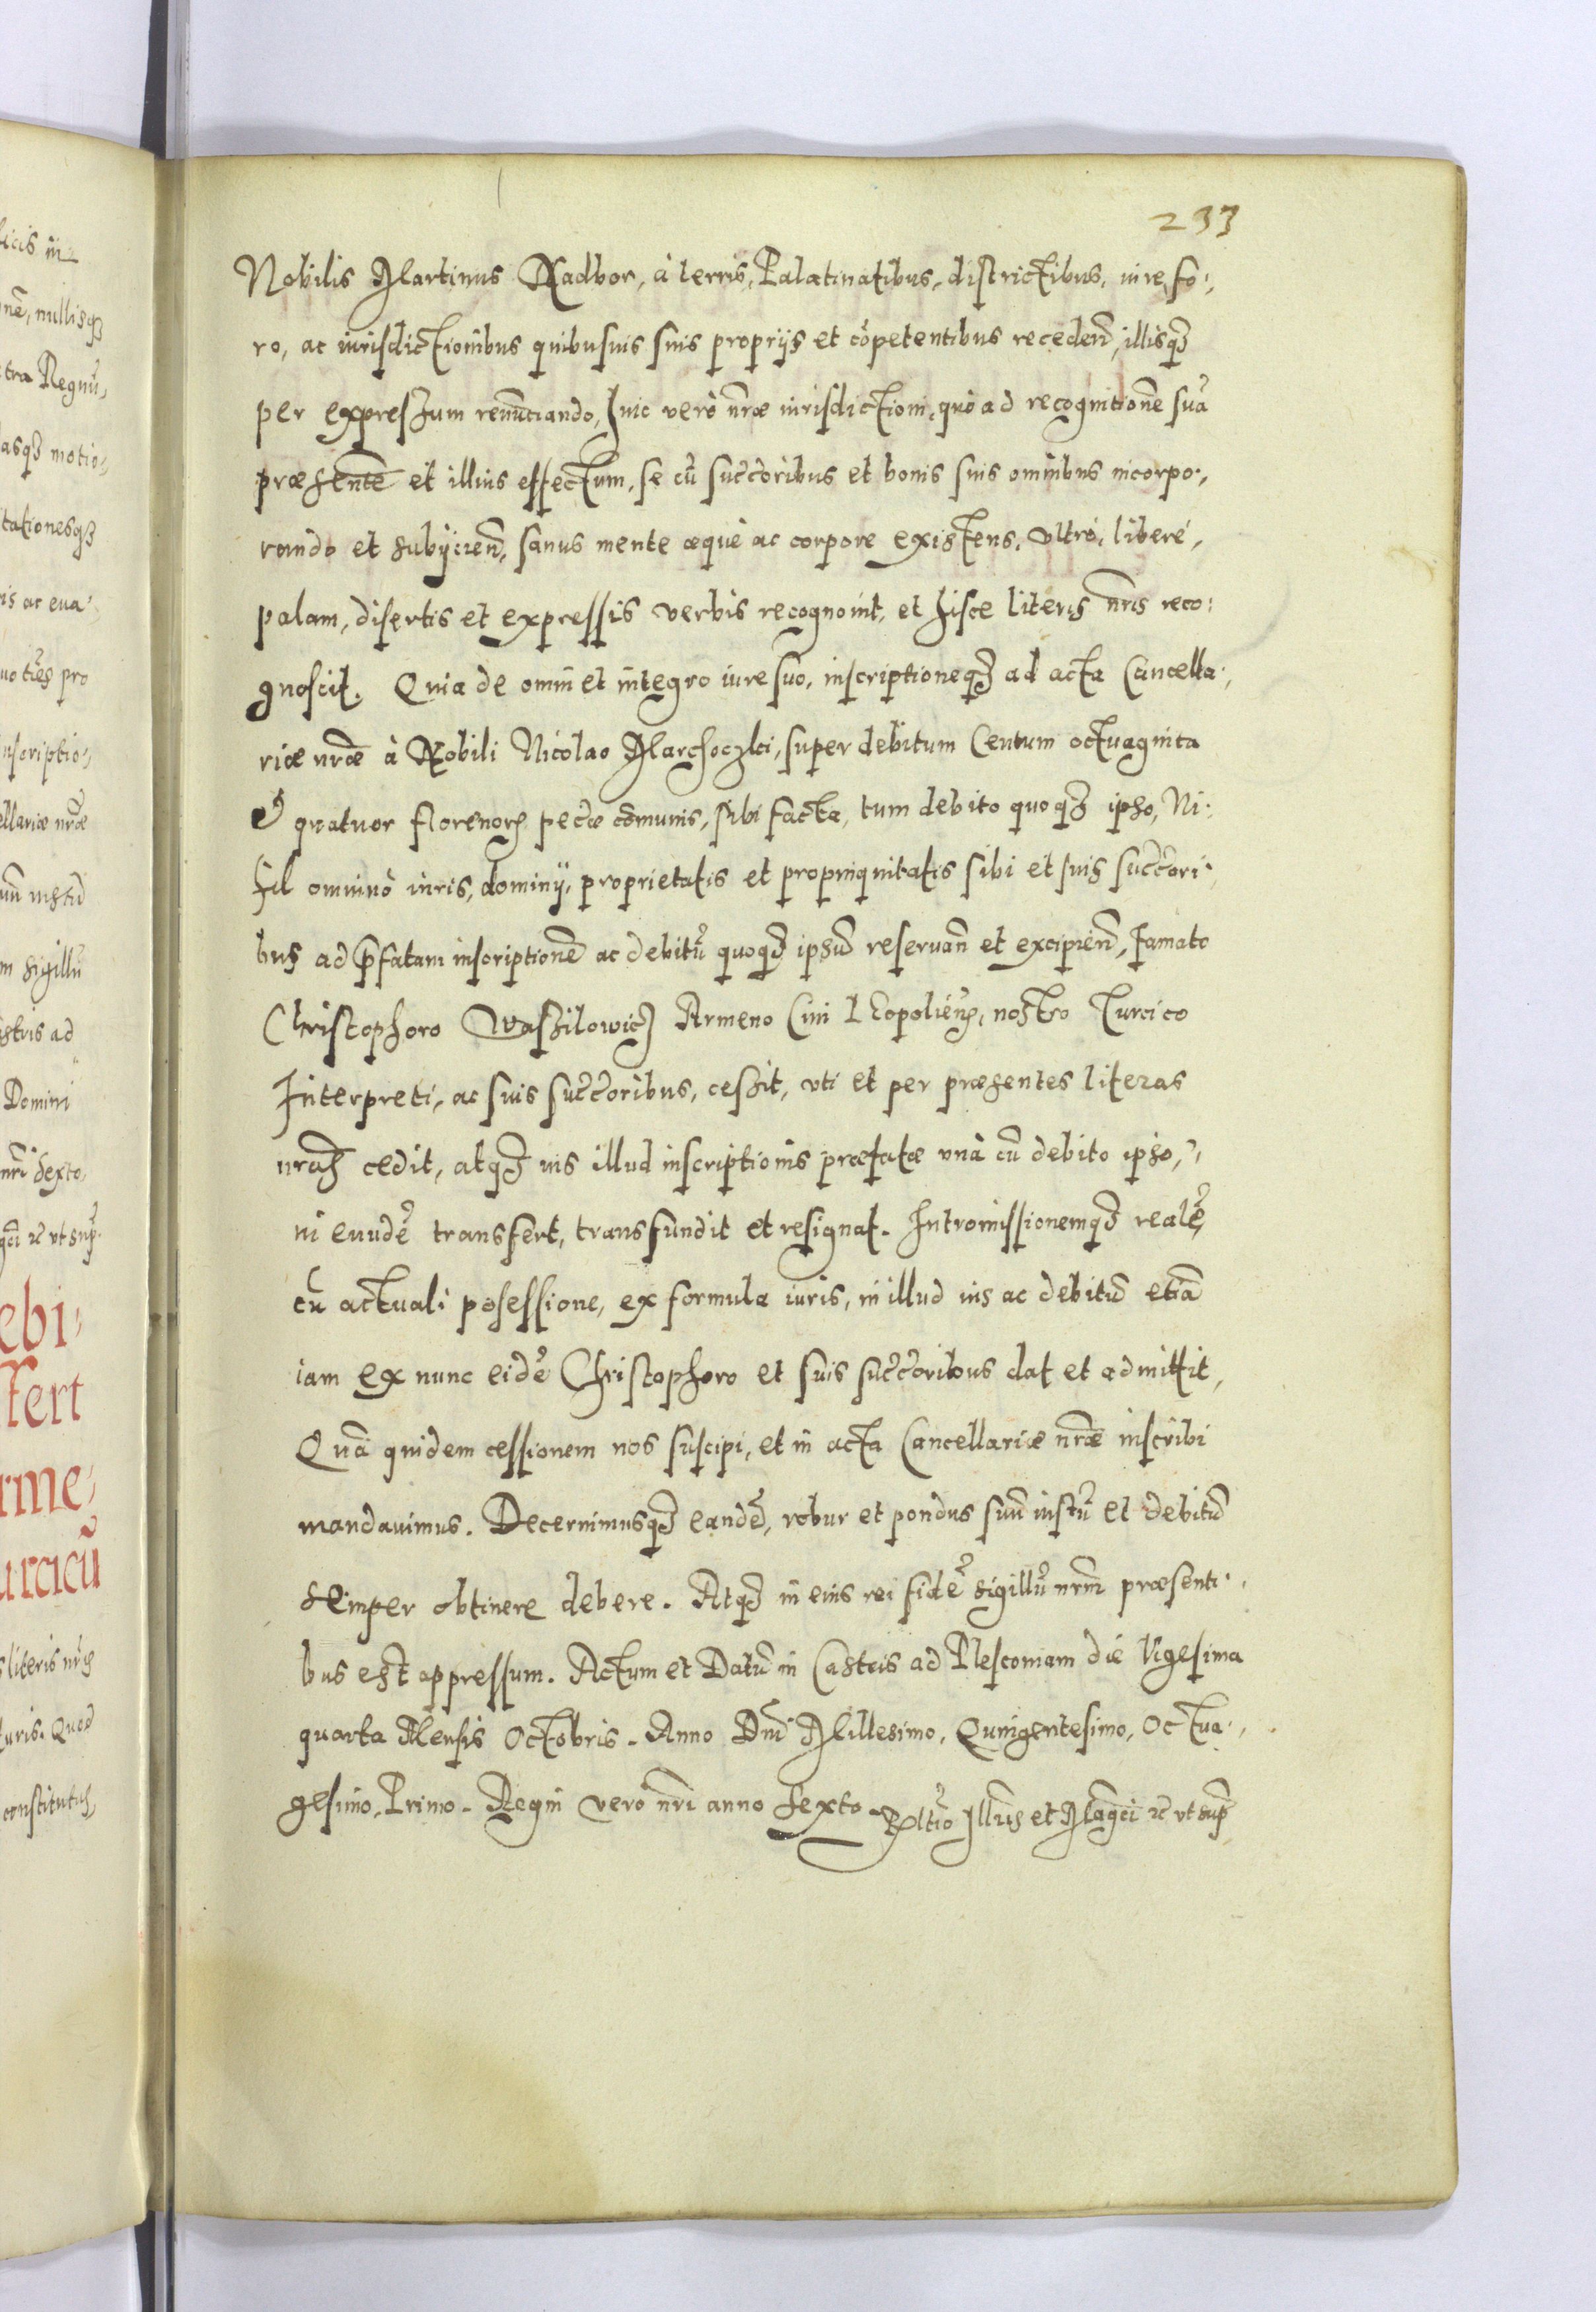 233
Nobilis Martinus Nadbor, à terris, Palatinatibus, districtibus, iure, fo:,
ro, ac iurisdictionibus quibusuis suis proprijs et cōpetentibus recedeñ, illisqȝ
per expressum renūciando, huic verò nr̄æ iurisdictioni, quò ad recognitionē suā
præsentē et illius effectum, se cū succ̄oribus et bonis suis omnibus incorpo:,
rando et subijcieñ, sanus mente æquè ac corpore existens, vltrò, liberè,
palam, disertis et expressis verbis recognouit, et hisce literis nr̄is reco:
gnoscit. Quia de omni et integro iure suo, inscriptioneqȝ ad acta Cancella:,
riæ nr̄æ à Nobili Nicolao Marchoczki, super debitum Centum octuaginta
et quatuor florenorȝ pec̄æ cōmunis, sibi facta, tum debito quoqȝ ipso, Ni:
hil omninò iuris, dominij, proprietatis et propinquitatis sibi et suis succ̄ori:,
bus ad p̄fatam inscriptionē ac debitū quoqȝ ipsū reseruañ et excipieñ, famato
Christophoro Wassilowicȝ Armeno Ciui Leopolieñ, nostro Turcico
Interpreti, ac suis succ̄oribus, cessit, vti et per præsentes literas
nr̄as cedit, atqȝ ius illud inscriptionis præfatæ vnà cū debito ipso,
in eundē transfert, transfundit et resignat. Intromissionemqȝ realē,
cū actuali possessione, ex formula iuris, in illud ius ac debitū etiā
iam ex nunc eidē Christophoro et suis succ̄oribus dat et admittit,
Quā quidem cessionem nos suscipi, et in acta Cancellariæ nr̄æ inscribi
mandauimus. Decernimusqȝ eandē, robur et pondus suū iustū et debitū
semper obtinere debere. Atqȝ in eius rei fidē sigillū nr̄m præsenti:,
bus est appressum. Actum et Datū in Castris ad Plescouiam die Vigesima
quarta Mensis Octobris. Anno Dn̄i Millesimo, Quingentesimo, Octua:,
gesimo, Primo. Regni verò nr̄i anno sexto. Rel̄tio Ill̄ris et Mag̅ci ꝛc̄ vt sup̄